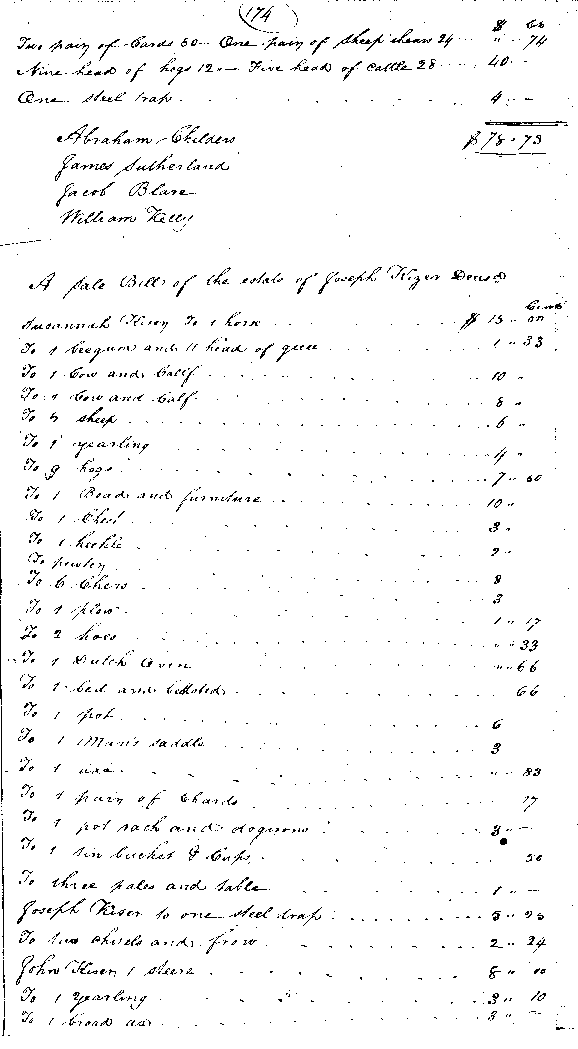 174
$ Cts
Two pair of Cards 50 - One pair of sheep shears 24 " 74
Nine head of hogs 12 - Five head of cattle 28 40 -
One steel trap 4 -
$ 78.73
Abraham Childers
James Sutherland
Jacob Blare
William Kelly
A Sale Bill of the estate of Joseph Kizer Decsd
Cents
Susannah Kiser To 1 horse $ 15 00
To 1 beegum and 11 head of geese 1 33
To 1 Cow and Calf 10 "
To 1 Cow and Calf 8 "
To 5 sheep 6 "
To 1 yearling 4 "
To 9 hogs 7 50
To 1 Bead and furniture 10 "
To 1 Chest 3 "
To 1 hackle 2 "
To pewter 8
To 6 Chers 3
To 1 plow 1 17
To 2 hoes " 33
To 1 Dutch Oven " 66
To 1 bed and bedsted 66
To 1 pot 6
To 1 Man's saddle 3
To 1 axe " 83
To 1 pair of Chards 17
To 1 pot rack and dogirons 3 -
To 1 tin bucket & Cups 50
To three pales and table 1 -
Joseph Kiser to one steel trap 3 25
To two chisels and frow 2 24
John Kiser 1 steere 8 00
To 1 yearling 3 10
To 1 broad ax 3 -